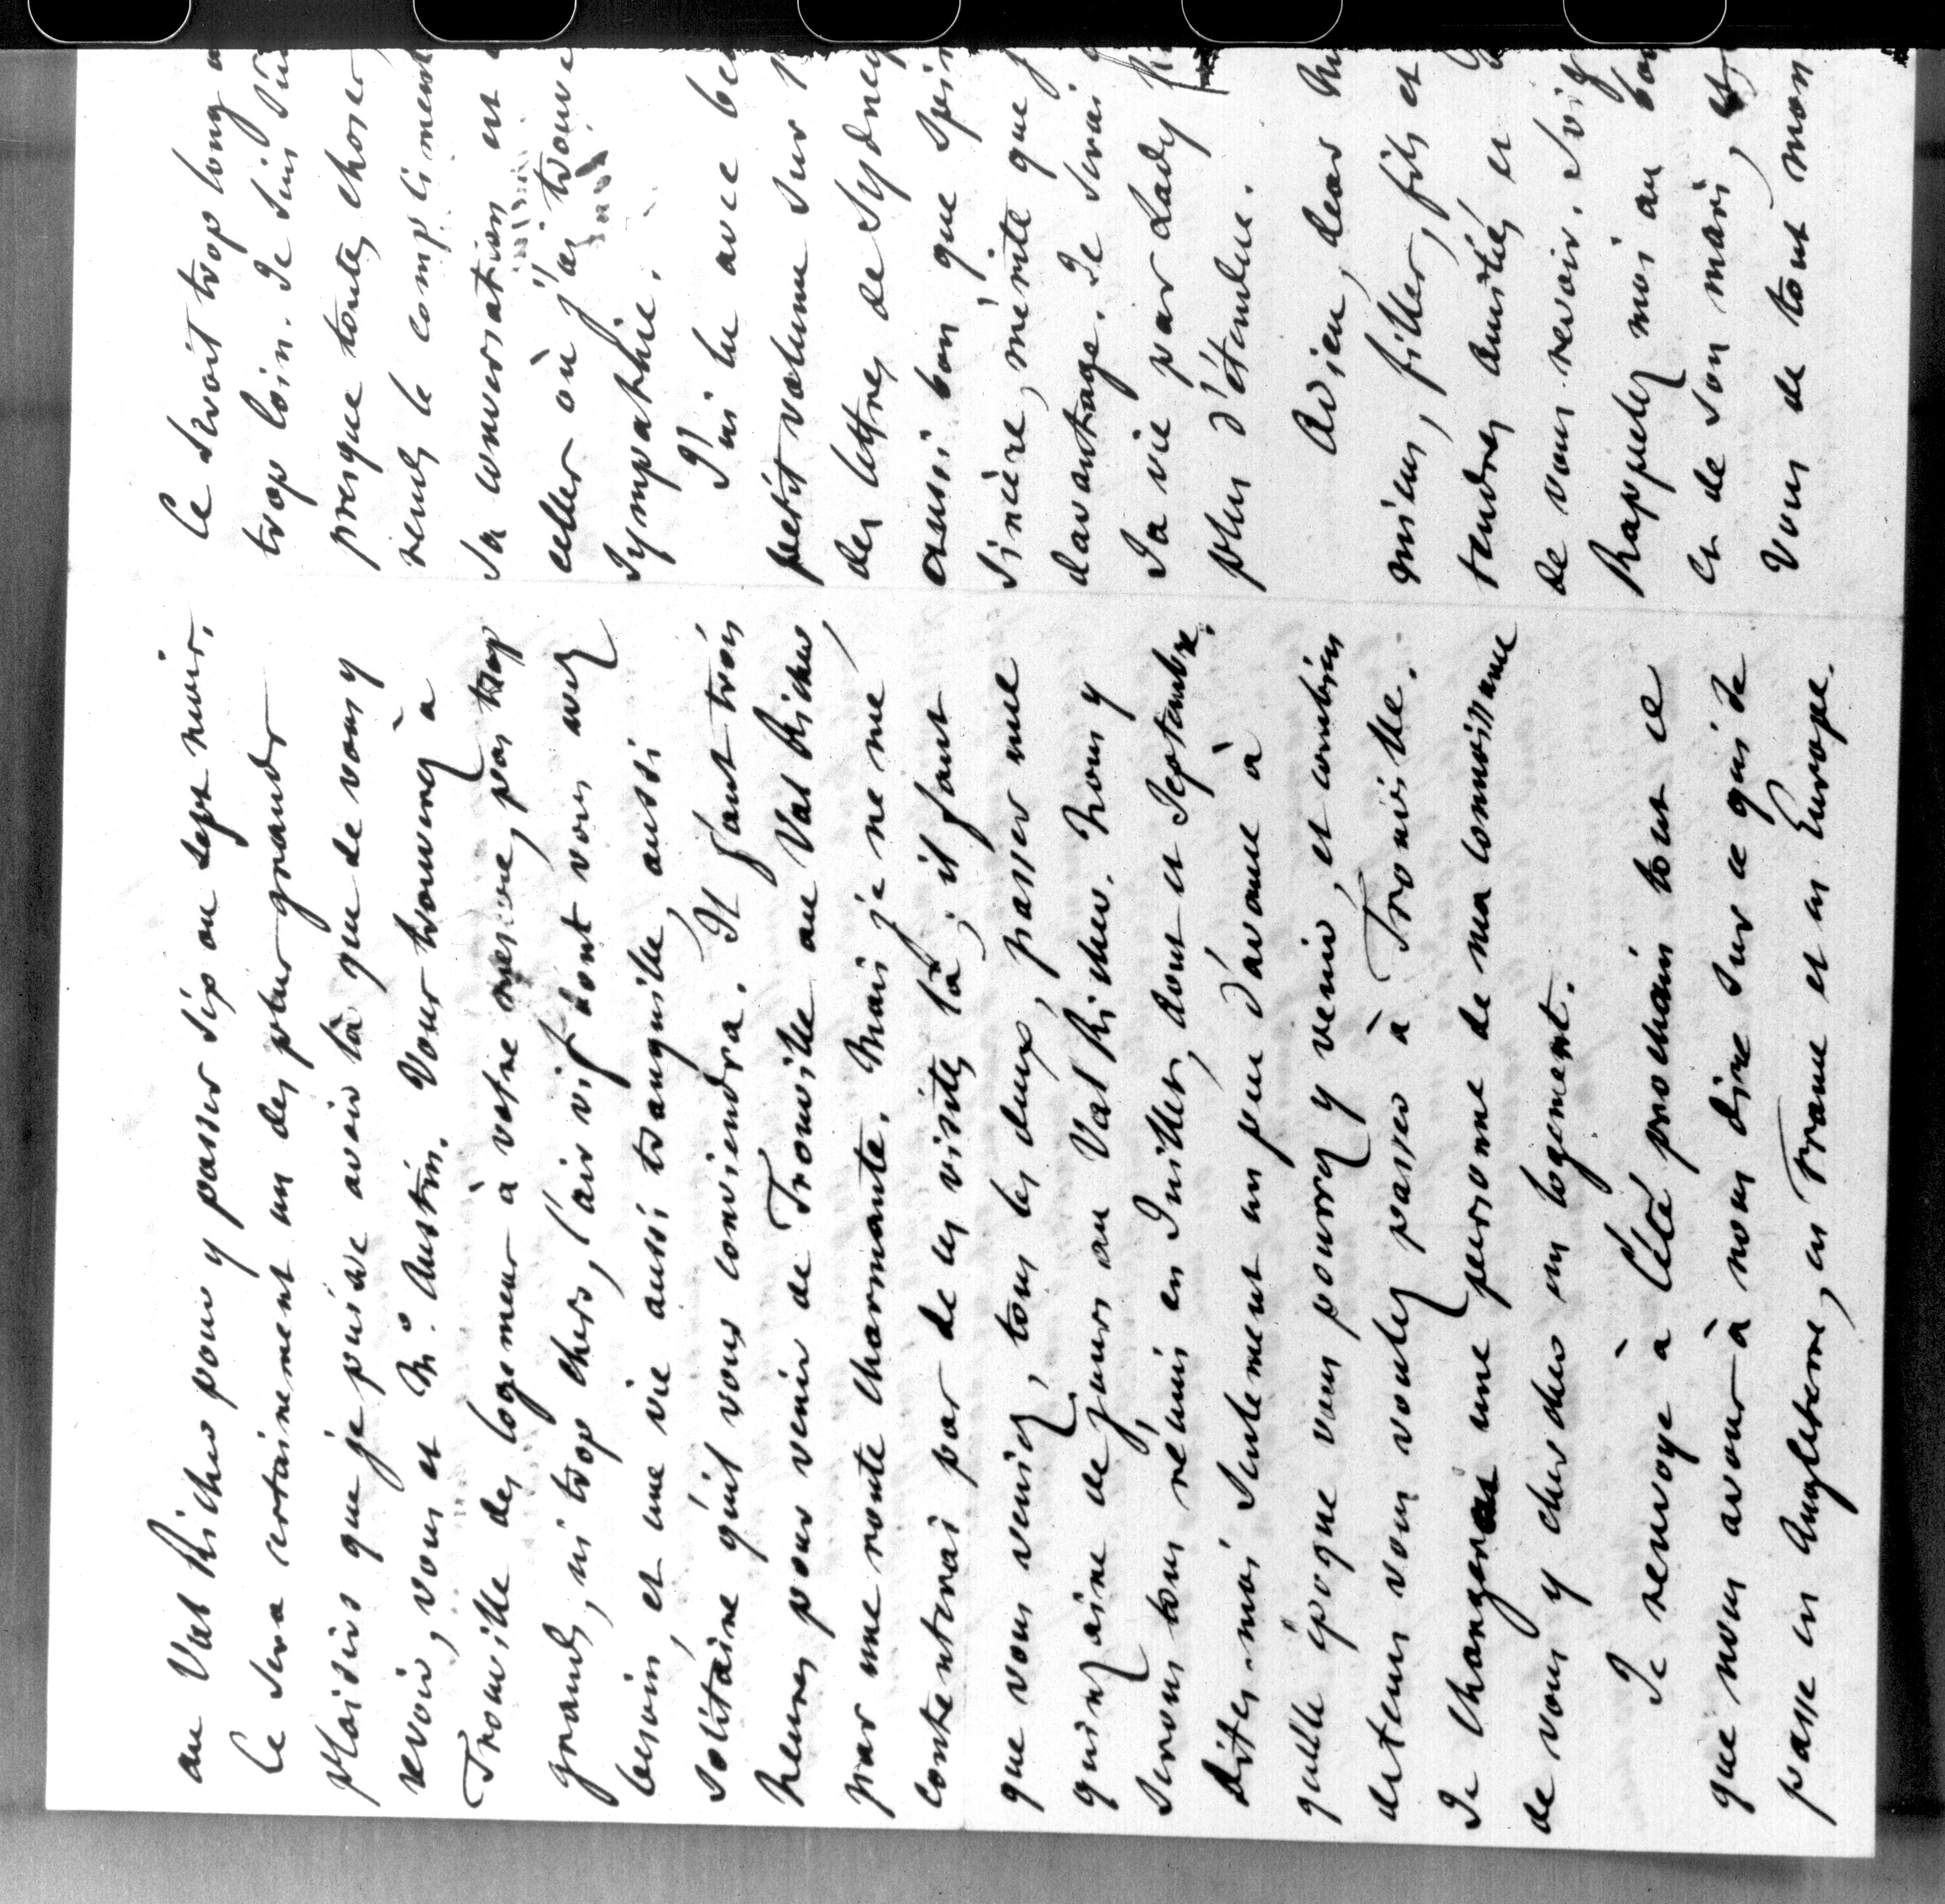 au Val Richer pour y passer six ou sept mois.
Ce sera certainement un des plus grands
plaisirs que je puisse avoir là que de vous y
revoir, vous et Mr. Austin. Vous trouverez à
Trouville des logemens à votre mesure, pas trop
grands, ni trop chers, l'air vif dont vous avez
besoin, et une vie aussi tranquille, aussi
solitaire qu'il vous conviendra. Il faut trois
heures pour venir de Trouville au Val Richer,
par une route charmante. Mais je ne me
contenterai par de ces visites là ; il faut
que vous veniez, tous les deux, passer une
quinzaine de jours au Val Richer. Nous y
serons tous réunis en Juillet, Aout et Septembre.
Dites-moi seulement un peu d'avance à
quelle époque vous pourrez y venir, et combien
de tems vous voulez passer à Trouville.
Je chargerai une personne de ma connoissance
de vous y chercher un logement.
Je renvoye à l'été prochain tout ce
que nous avons à nous dire sur ce qui se
passe en Angleterre, en France et en Europe.
Ce seroit trop long
trop loin. Je suis
presque toutes choses,
rends le compliment
sa conversation est
celles où j'ai trouvé
sympathie.
J'ai lu avec
petit volume sur
des lettres de Sydney
aussi bon, que
sincère, mérite que
davantage. Je serai
sa vie par Lady
plus d'étendue.
Adieu, dear
miens, filles, fils et
tendres amitiés et
de vous revoir.
Rappelez moi au
et de son mari, et
vous de tout mon